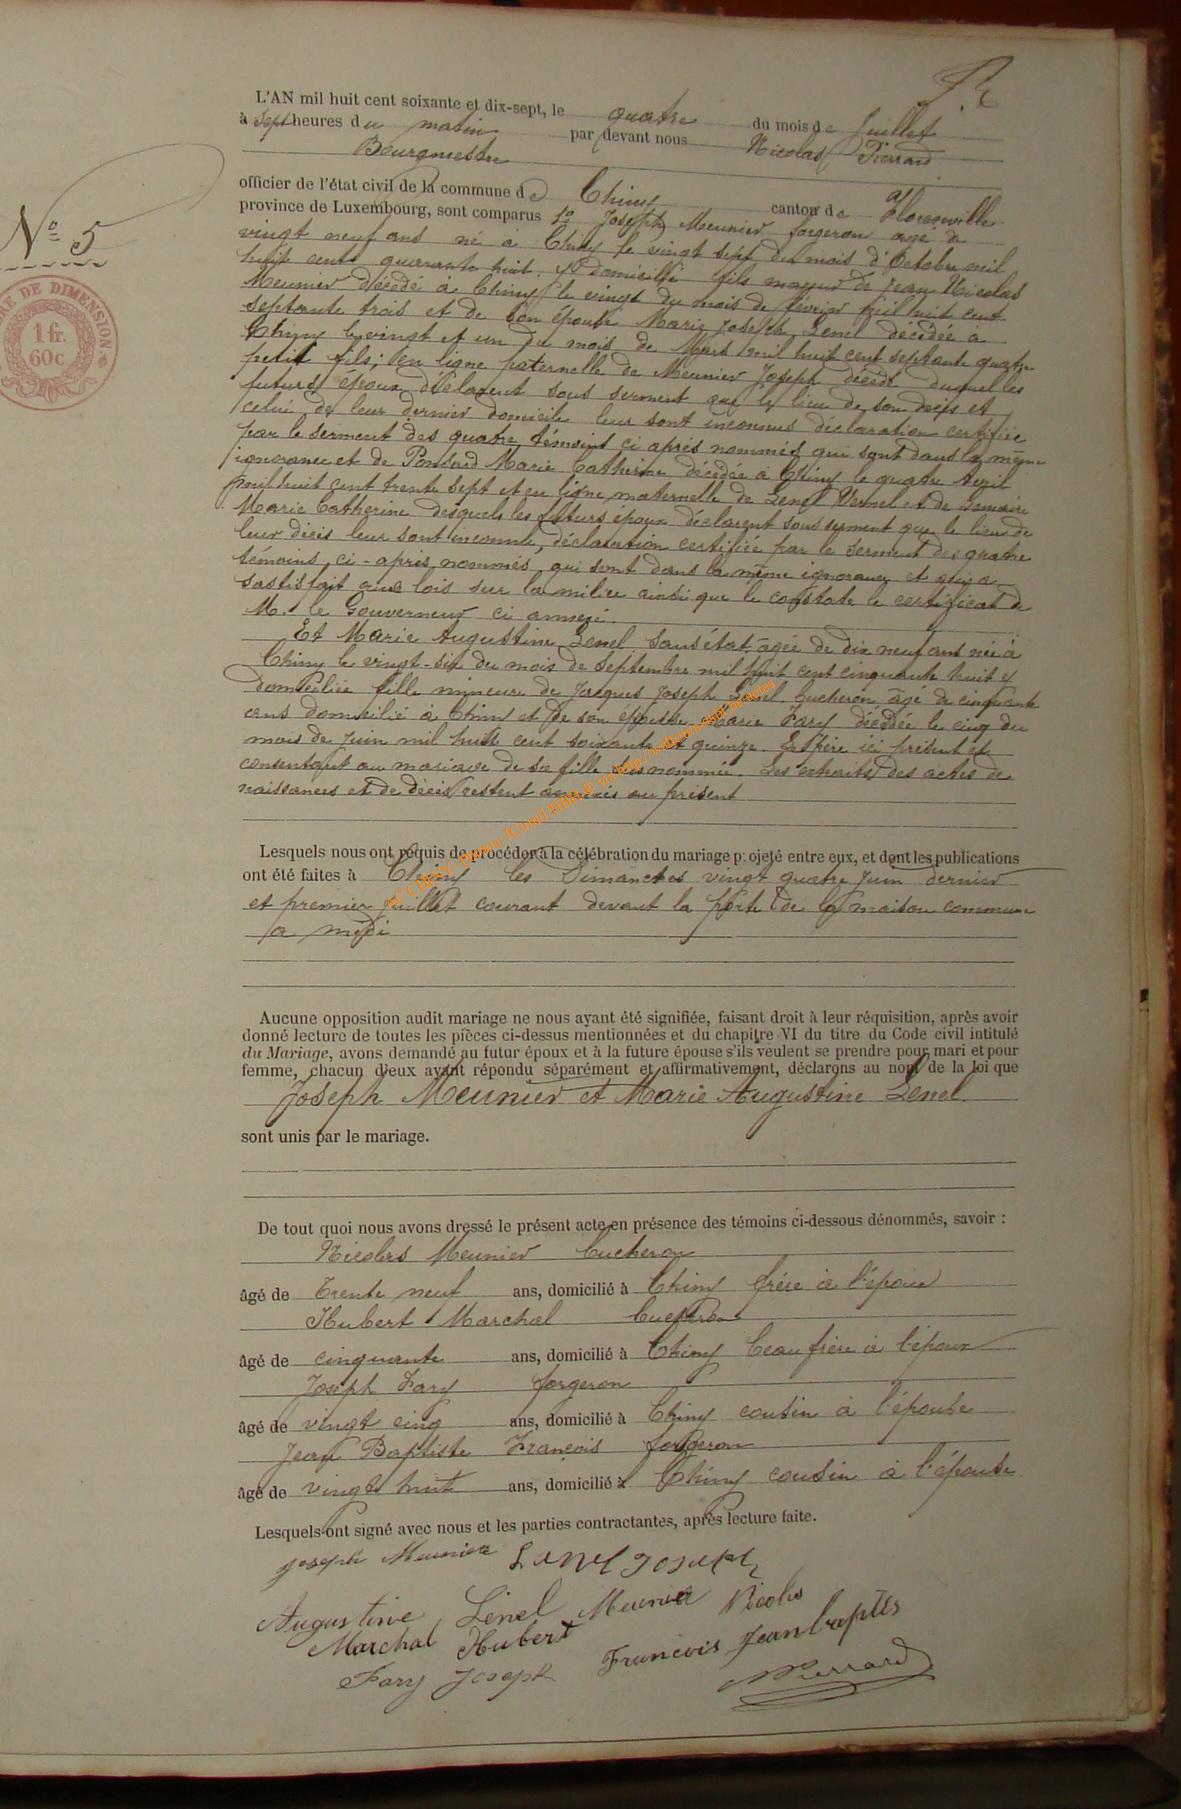 L'AN mil huit cent soixante et dix-sept, le quatre du mois de Juillet
à sept heures du matin par devant nous Nicolas Pierrard
Bourgmestre
officier de l'état civil de la commune de Chiny canton de Florenville
province de Luxembourg, sont comparus 1o Joseph Meunier forgeron agé de
vingt neuf ans né à Chiny le vingt sept du mois d'Octobre mil
huit cent quarante huit y domicilié fils majeur de Jean Nicolas
Meunier décédé à Chiny le vingt du mois de février mil huit cent
septante trois et de son épouse Marie Joseph Lenel décédée à
Chiny le vingt et un du mois de Mars mil huit cent septante quatre
petit fils; en ligne paternelle de Meunier Joseph décédé duquel les
futurs époux déclarent sous serment que le lieu de son décès et
celui de leur dernier domicile leur sont inconnus déclaration certifiée
par le serment des quatre témoins ci après nommés qui sont dans la même
ignorance et de Ponsard Marie Catherine décédée à Chiny le quatre Avril
mil huit cent trente sept et en ligne maternelle de Lenel et de Lemaire
Marie Catherine desquels les futurs époux déclarent sous serment que le lieu de
leur décès leur sont inconnus, déclaration certifiée par le serment des quatre
témoins ci-après nommés qui sont dans la même ignorance et qui a
sastisfait aux lois sur la milice ainsi que le constate le certificat de
M. le Gouverneur ci annexé.
Et Marie Augustine Lenel sans état agée de dix neuf ans née à
Chiny le vingt-six du mois de Septembre mil huit cent cinquante huit y
domiciliée fille mineure de Jacques Joseph Lenel bucheron, âgé de cinquante
ans domicilié à Chiny et de son épouse Marie Fary décédée le cinq du
mois de Juin mil huit cent soixante et quinze. Le père ici présent et
consentant au mariage de sa fille nommée. Les extraits des actes de
naissances et de décès restent annexés au présent
Lesquels nous ont requis de procéder à la célébration du mariage projeté entre eux, et dont les publications
ont été faites à Chiny les Dimanches vingt quatre Juin dernier
et premier juillet courant devant la porte de la maison commune
a midi
Aucune opposition audit mariage ne nous ayant été signifiée, faisant droit à leur réquisition, après avoir
donné lecture de toutes les pièces ci-dessus mentionnées et du chapitre VI du titre du Code civil intitulé
du Mariage, avons demandé au futur époux et à la future épouse s'ils veulent se prendre pour mari et pour
femme, chacun d'eux ayant répondu séparément et affirmativement, déclarons au nom de la loi que
Joseph Meunier et Marie Augustine Lenel
sont unis par le mariage.
De tout quoi nous avons dressé le présent acte en présence des témoins ci-dessous dénommés, savoir :
Nicolas Meunier bucheron
âgé de trente neuf ans, domicilié à Chiny frère à l'époux
Hubert Marchal bucheron
âgé de cinquante ans, domicilié à Chiny beau frère à l'époux
Joseph Fary forgeron
âgé de vingt cinq ans, domicilié à Chiny cousin à l'épouse
Jean Baptiste François forgeron
âgé de vingt huit ans, domicilié à Chiny cousin à l'épouse
Lesquels ont signé avec nous et les parties contractantes, après lecture faite.
Joseph Meunier Lenel Joseph
Augustine Lénel Meunier Nicolas
Marchal Hubert François Jeanbaptiste
Fary Joseph NPierrard
No 5
DE DIMENSION
1 fr.
60c.